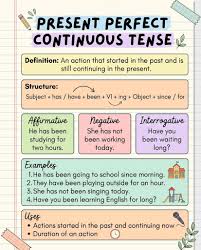 PRESENT PERFECT
CONTINUOUS TENSE
Definition: An action that started in the past and is
still continuing in the present.
Structure:
Subject + has / have + been + V1 + ing + Object + since / for
Affirmative
He has been
studying for
two hours.
Negative
She has not
been working
today.
Interrogative
Have you
been waiting
long?
Examples
1. He has been going to school since morning.
2. They have been playing outside for an hour.
3. She has not been singing today.
4. Have you been learning English for long?
Uses
Actions started in the past and continuing now
Duration of an action